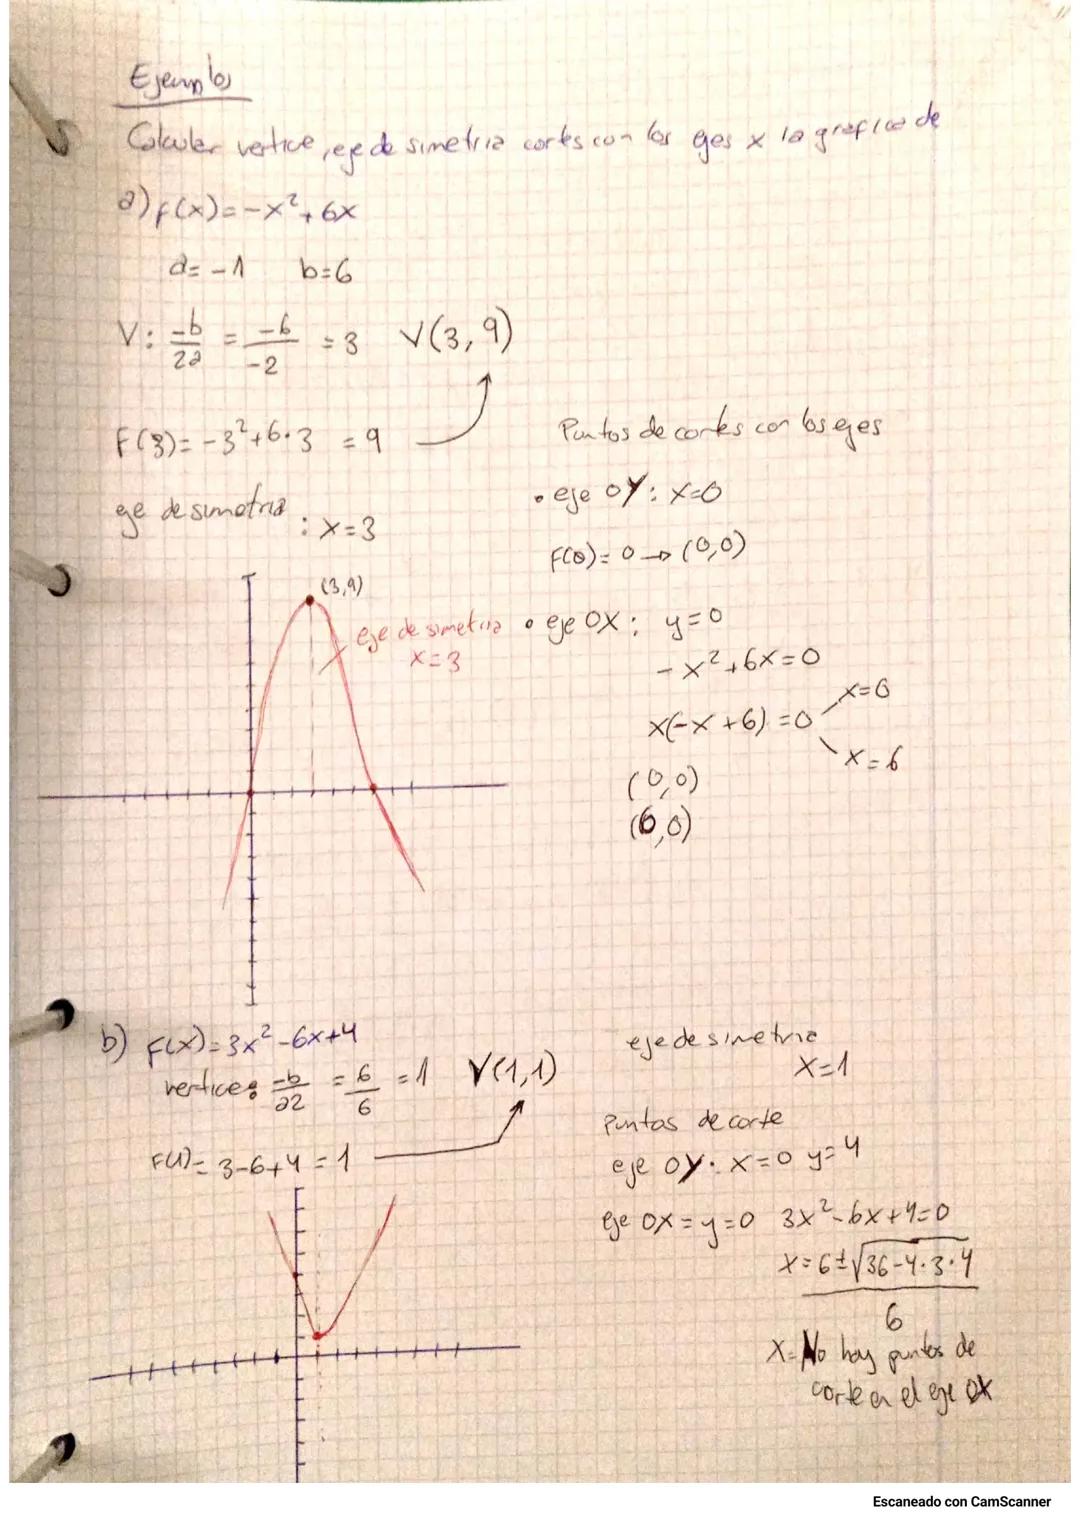 Ejemplos
Calcular vertice, eje de simetria cortes con los ejes x la grafica de
a) f(x)=-x²+6x
a=-1 b=6
V: -b/2a = -6/-2 = 3 V(3,9)
F(3)=-3²+6·3 =9
eje de simetria : x=3
Puntos de cortes con los ejes
• eje OY: x=0
F(0)=0→(0,0)
(3,9)
eje de simetria
x=3
• eje OX: y=0
-x²+6x=0
x(-x+6)=0
x=0
x=6
(0,0)
(6,0)
b) F(x)=3x²-6x+4
vertice: -b/2a = 6/6 =1 V(1,1)
F(1)=3-6+4=1
eje de simetria
x=1
Puntos de corte
eje OY: x=0 y=4
eje OX=y=0 3x²-6x+4=0
x=6±√36-4·3·4
6
x=No hay puntos de
corte en el eje OX
Escaneado con CamScanner